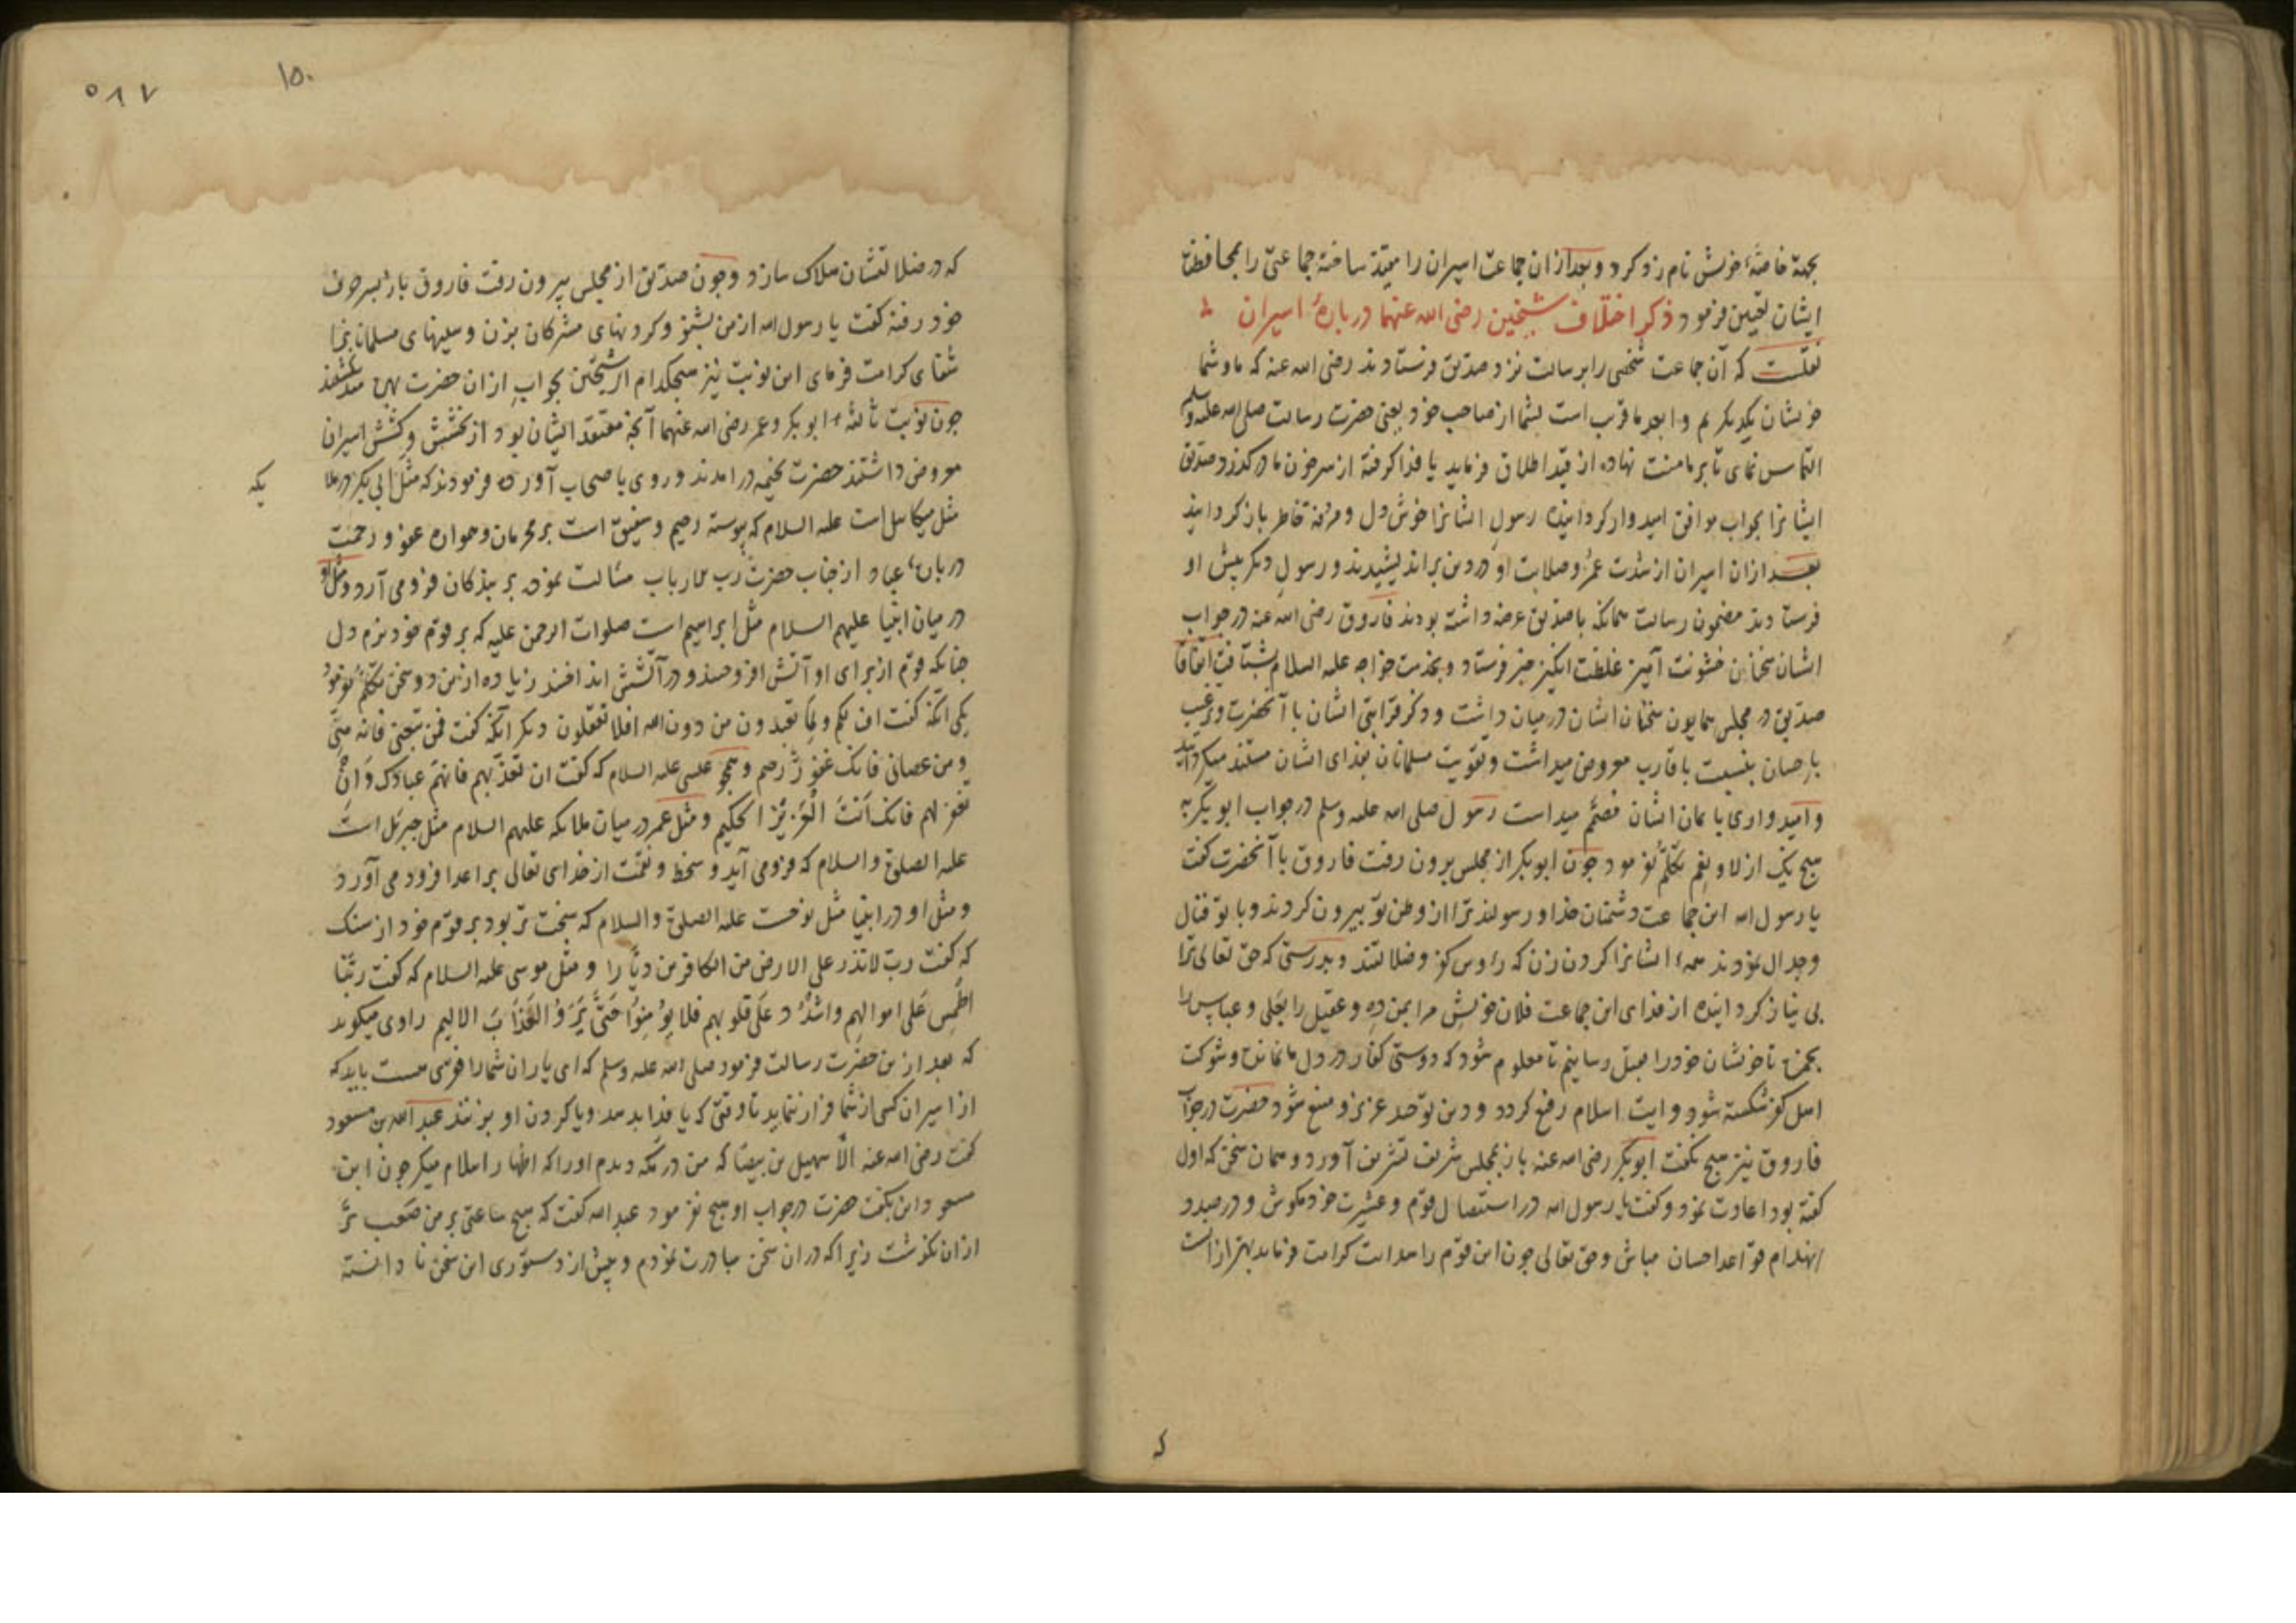 بجهة خاصهٔ خویش نام زد کرد و بعد ازان جماعت اسیران را مقید ساخته جماعتی را بمحافظت
ایشان تعیین فرمود ذکر اختلاف شیخین رضی الله عنهما در بارهٔ اسیران
نقلست که آن جماعت شخصی را برسالت نزد صدیق فرستادند رضی الله عنه که ما و شما
خویشان یکدیکریم و ابعد ما قرب است بشما از صاحب خود یعنی حضرت رسالت صلی الله علیه وسلم
التماس نمای تا بر ما منت نهاده از قید اطلاق فرماید یا فدا کرفته از سر خون ما درکذرد صدیق
ایشانرا بجواب موافق امیدوار کردانیده رسول ایشانرا خوش دل و مرفه خاطر باز کردانید
بعد ازان اسیران از شدت عمر و صلابت او در دین براندیشیدند و رسول دیکر پیش او
فرستادند مضمون رسالت همانکه با صدیق عرضه داشته بودند فاروق رضی الله عنه در جواب
ایشان سخنان خشونت آمیز غلظت انکیز خبر فرستاد و بخدمت خواجه علیه السلام بشتافت اتفاقا
صدیق در مجلس همایون سخنان ایشان در میان داشت و ذکر قرابتی ایشان با آنحضرت و ترغیب
باحسان بنسبت باقارب معروض میداشت و تقویت مسلمانان بفدای ایشان مستند میکردانید
و امیدواری بایمان ایشان منضم میداست رسول صلی الله علیه وسلم در جواب ابوبکر به
هیچ یک از لا و نعم تکلم نفرمود جون ابوبکر از مجلس برون رفت فاروق با آنحضرت کفت
یا رسول الله این جماعت دشمنان خدا و رسولند ترا از وطن تو بیرون کردند و با تو قتال
و جدال نمودند همه ایشانرا کردن زن که رؤس کفر و ضلالتند و بدرستی که حق تعالی ترا
بی نیاز کردانیده از فدای این جماعت فلان خویش مرا بمن ده و عقیل را بعلی و عباس را
بحمزه تا خویشان خود را بقتل رسانیم تا معلوم شود که دوستی کفار در دل ما نمانده و شوکت
اهل کفر شکسته شود و رایت اسلام رفع کردد و دین توحید عزیز و منیع شود حضرت در جواب
فاروق نیز هیچ نکفت ابوبکر رضی الله عنه باز بمجلس شریف تشریف آورد و همان سخن که اول
کفته بود اعادت نمود و کفت یا رسول الله در استیصال قوم و عشیرت خود مکوش و در صدد
انهدام قواعد احسان مباش و حق تعالی جون این قوم را هدایت کرامت فرماید بهتر ازانست
که
۵۸۷
۱۵۰
که در ضلالتشان هلاک سازد و جون صدیق از مجلس بیرون رفت فاروق باز بسر حرف
خود رفته کفت یا رسول الله از من بشنو و کردنهای مشرکان بزن و سینهای مسلمانانرا
شفای کرامت فرمای این نوبت نیز هیچکدام از شیخین بجواب ازان حضرت
جون نوبت ثالثه ابوبکر و عمر رضی الله عنهما آنچه معتقد ایشان بود از بخشش و کشش اسیران
معروض داشتند حضرت بخیمه درامدند و روی باصحاب آورده فرمودند که مثل ابی بکر در ملا
یکه
مثل میکائیل است علیه السلام که پیوسته رحیم و شفیق است بر مجرمان و همواره عفو و رحمت
دربارهٔ عباد از جناب حضرت رب الارباب مسألت نموده بر بندکان فرو می آرد و مثل او
در میان انبیا علیهم السلام مثل ابراهیم است صلوات الرحمن علیه که بر قوم خود نرم دل
جنانکه قوم از برای او آتش افروختند و در آتشش انداختند زیاده ازین دو سخن تکلم نفرمود
یکی آنکه کفت اف لکم ولما تعبدون من دون الله افلا تعقلون دیکر آنکه کفت فمن تبعنی فانه منی
ومن عصانی فانک غفور رحیم و همچو عیسی علیه السلام که کفت ان تعذبهم فانهم عبادک وان
تغفر لهم فانک انت العزیز الحکیم و مثل عمر در میان ملائکه علیهم السلام مثل جبرئیل است
علیه الصلوة والسلام که فرو می آید و سخط و نقمت از خدای تعالی بر اعدا فرود می آورد
و مثل او در انبیا مثل نوحست علیه الصلوة والسلام که سخت تر بود بر قوم خود از سنک
که کفت رب لا تذر علی الارض من الکافرین دیارا و مثل موسی علیه السلام که کفت ربنا
اطمس علی اموالهم واشدد علی قلوبهم فلا یؤمنوا حتی یروا العذاب الالیم راوی میکوید
که بعد ازین حضرت رسالت فرمود صلی الله علیه وسلم که ای یاران شما را فقری هست باید که
از اسیران کسی از شما فرار ننماید تا وقتی که یا فدا بدهد و یا کردن او بزنند عبد الله بن مسعود
کفت رضی الله عنه الا سهیل بن بیضا که من در مکه دیدم او را که اظهار اسلام میکرد جون ابن
مسعود این بکفت حضرت در جواب او هیچ نفرمود عبد الله کفت که هیچ ساعتی بر من صعب تر
ازان نکذشت زیرا که دران سخن مبادرت نمودم و پیش از دستوری این سخن نادانسته